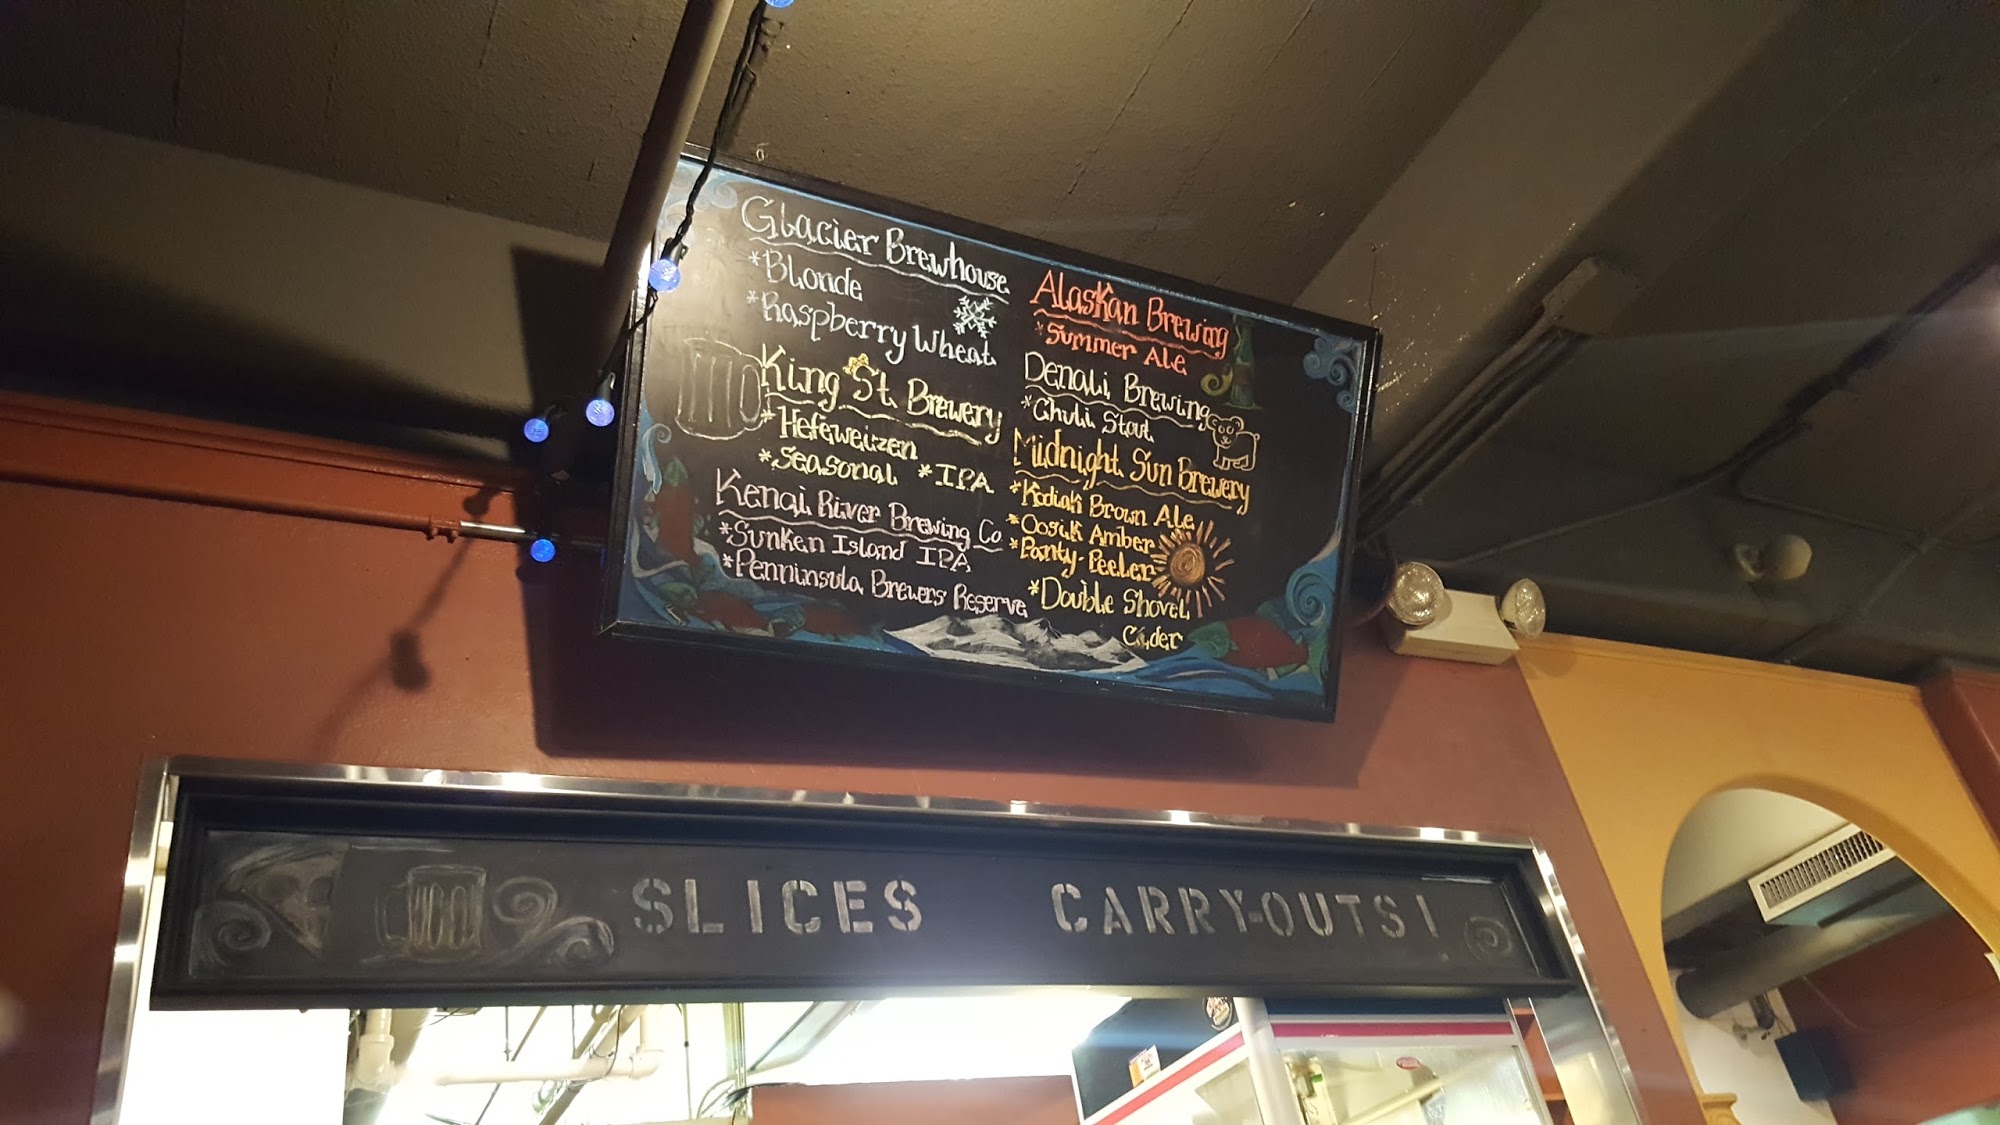 Glacier Brewhouse
*Blonde
*Raspberry Wheat
King St. Brewery
*Hefeweizen
*Seasonal *IPA
Kenai River Brewing Co
*Sunken Island IPA
*Penninsula Brewers Reserve
Alaskan Brewing
*Summer Ale
Denali Brewing
*Chuli Stout
Midnight Sun Brewery
*Kodiak Brown Ale
*Oosik Amber
*Panty-Peeler
*Double Shovel
Cider
SLICES CARRY-OUTS!